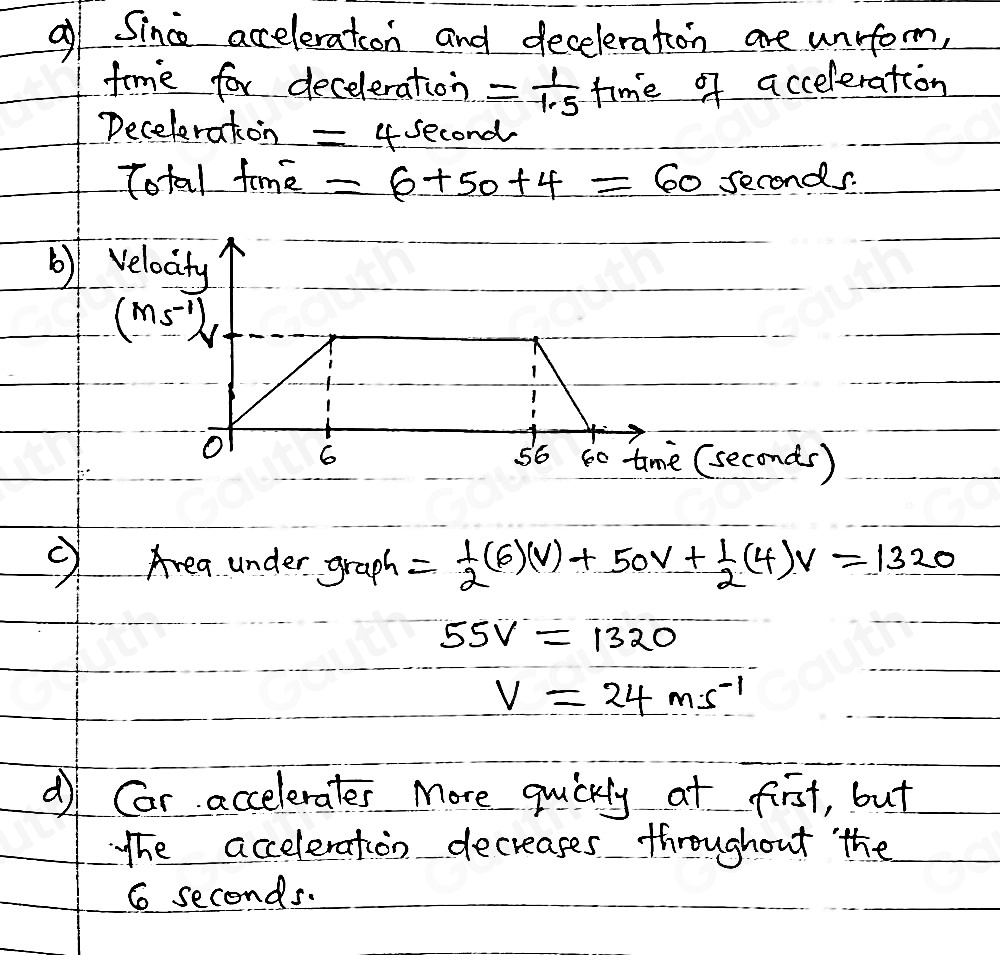 a) Since acceleration and deceleration are uniform,
time for deceleration = 1/1.5 time of acceleration
Deceleration = 4 seconds
Total time = 6+50+4 = 60 seconds.
b) Velocity
(ms⁻¹)
V
0 6 56 60 time (seconds)
c) Area under graph = 1/2(6)(V) + 50V + 1/2(4)V = 1320
55V = 1320
V = 24 ms⁻¹
d) Car accelerates More quickly at first, but
the acceleration decreases throughout the
6 seconds.
Gauth